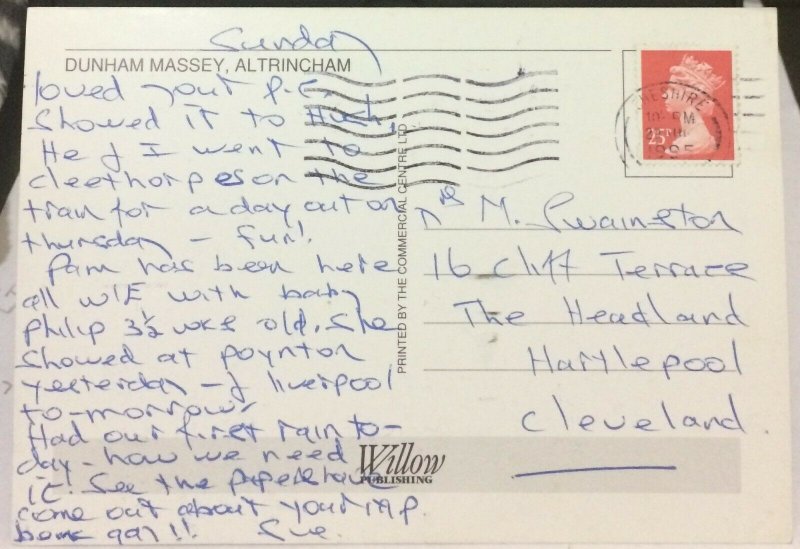 Sunday
DUNHAM MASSEY, ALTRINCHAM
loved your P.C.
Showed it to Hugh,
He & I went to
Cleethorpes on the
train for a day out on
thursday – fun!
Pam has been here
all W/E with baby
Philip 3½ wks old. She
Showed at Poynton
yesterday – & liverpool
to-morrow.
Had our first rain to-
day – how we need
it! See the papers have
come out about your M.P.
being gay!! Sue.
PRINTED BY THE COMMERCIAL CENTRE LTD
Willow
PUBLISHING
CHESHIRE
PM
1995
25
Mrs M. Swainston
16 Cliff Terrace
The Headland
Hartlepool
Cleveland.